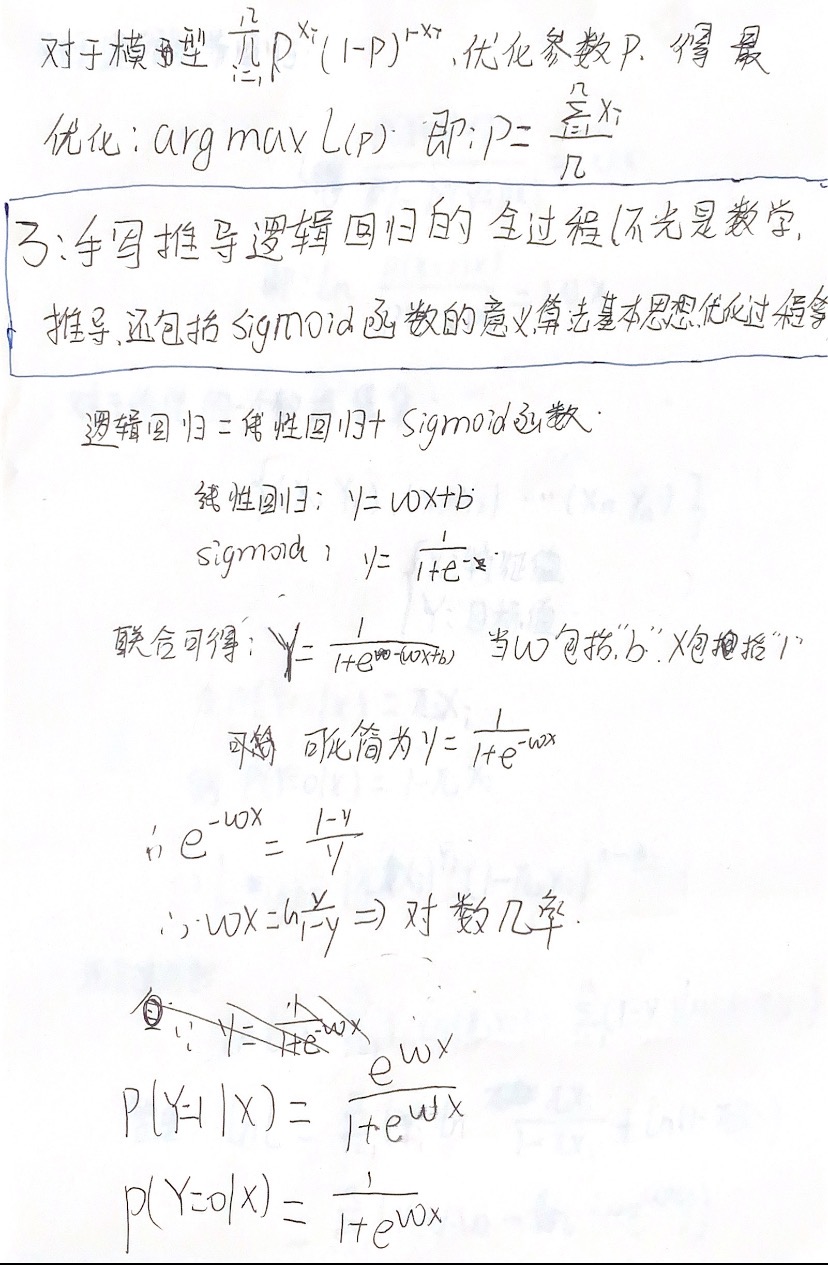 对于模型 ∏_{i=1}^{n} p^{x_i}(1-p)^{1-x_i}、优化参数P. 得最
优化: arg max L(p) 即: P = \frac{∑_{i=1}^{n} x_i}{n}
3:手写推导逻辑回归的全过程(不光是数学,
推导,还包括sigmoid函数的意义,算法基本思想,优化过程等
逻辑回归=线性回归+Sigmoid函数.
线性回归: y=wx+b
sigmoid: y=\frac{1}{1+e^{-z}}.
联合可得: Y=\frac{1}{1+e^{-(wx+b)}} 当w包括"b".X包括"1"
可化简为y=\frac{1}{1+e^{-wx}}
∴ e^{-wx} = \frac{1-y}{y}
∴ wx=ln\frac{y}{1-y} ⇒ 对数几率.
∵ y=\frac{1}{1+e^{-wx}}
P(Y=1|X) = \frac{e^{wx}}{1+e^{wx}}
p(Y=0|X) = \frac{1}{1+e^{wx}}